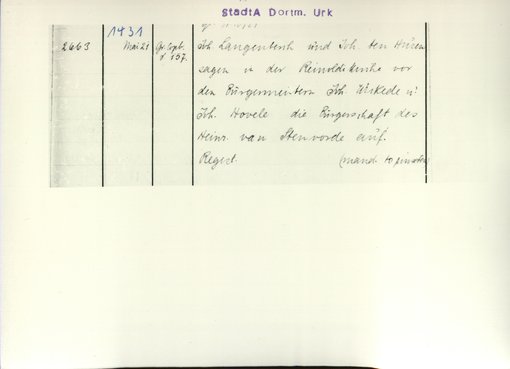 StadtA Dortm. Urk
1431
2663 Mai 21 Joh. Langentesh und Joh. ten Hüsen
sagen in der Reinoldikirche vor
den Bürgermeistern Joh. Wickede u.
Joh. Hovele die Bürgerschaft des
Heinr. van Stenvorde auf.
Regest